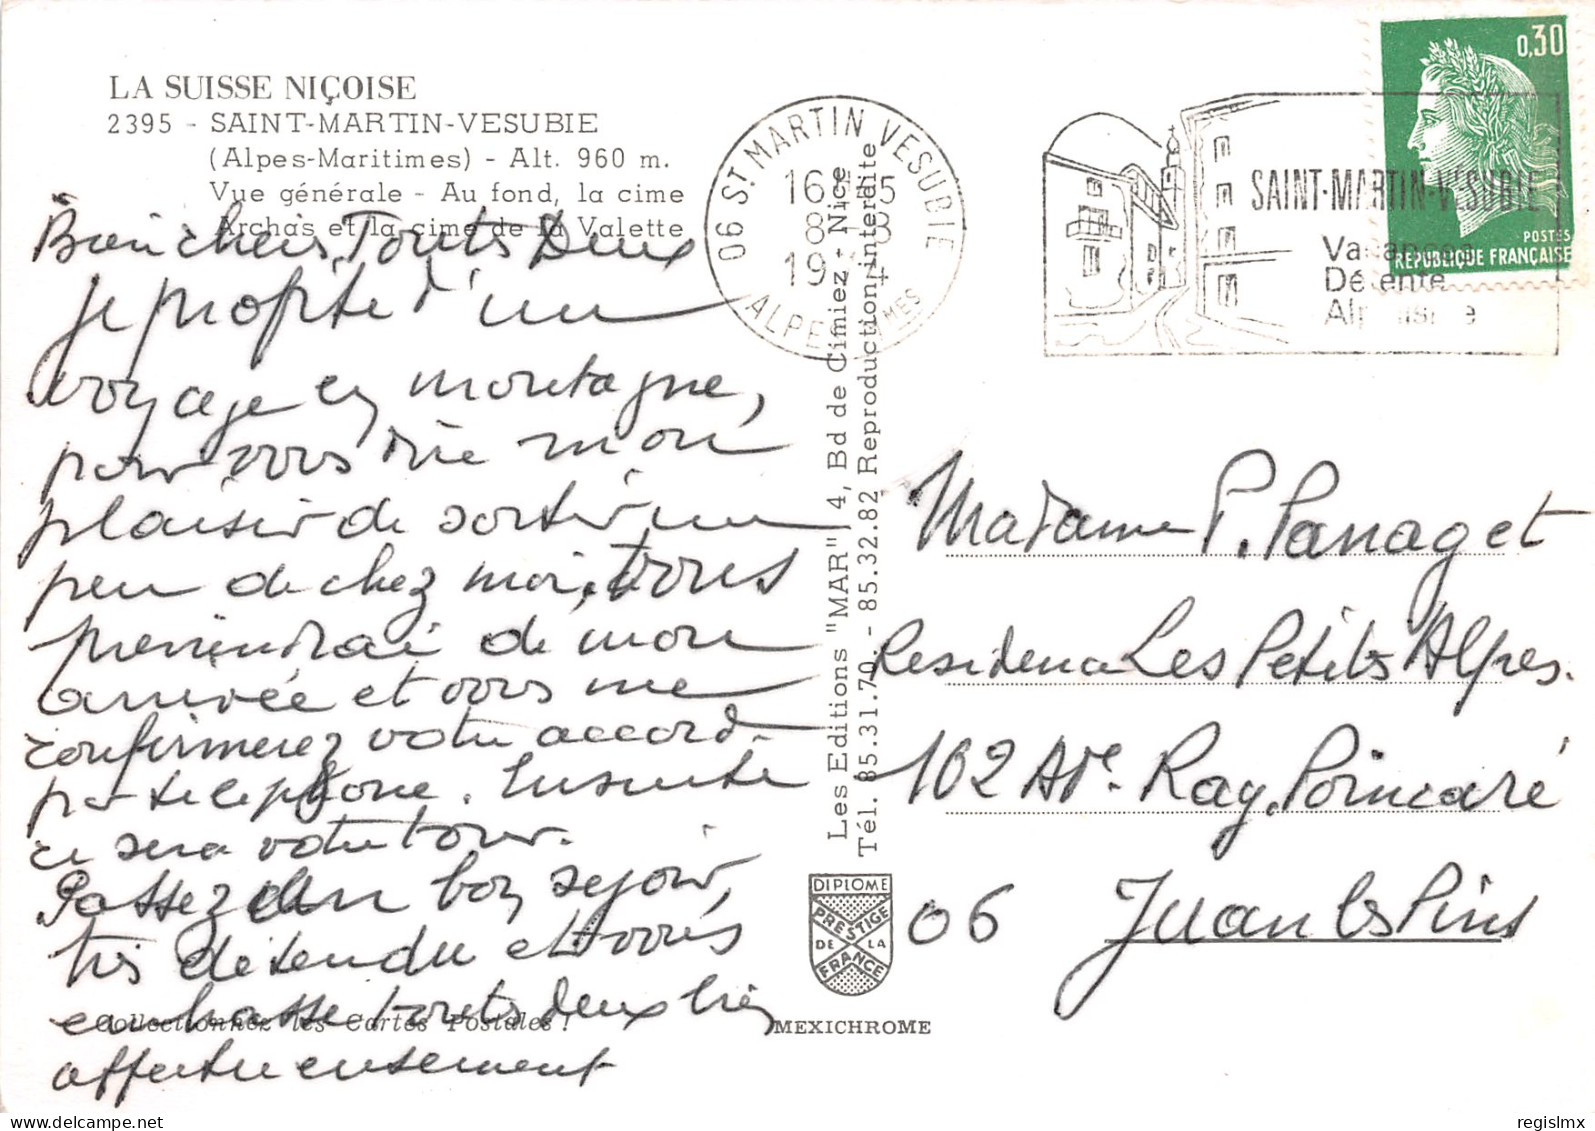 LA SUISSE NIÇOISE
2395 - SAINT-MARTIN-VESUBIE
(Alpes-Maritimes) - Alt. 960 m.
Vue générale - Au fond, la cime
Archas et la cime de la Valette
Touts Deux
Je profite d'un
voyage en montagne,
pour vous dire mon
plaisir de sortir un
peu de chez moi, vous
preniendrai de mon
arrivée et vous me
confirmerez votre accord
par telephone. Ensuite
ce sera votre tour.
Passez un bon sejour,
tres detendu et vous
embrasse touts deux bien
affectueusement
Collectionnez les Cartes Postales !
Les Editions "MAR" 4, Bd de Cimiez - Nice
Tél. 85.31.70. - 85.32.82 Reproduction interdite
DIPLOME
PRESTIGE
DE LA
FRANCE
MEXICHROME
06 ST MARTIN VESUBIE
16
8 8
19 4
ALPES MMES
SAINT-MARTIN-VESUBIE
Vacances
Détente
Alpinisme
0,30
POSTES
REPUBLIQUE FRANÇAISE
Madame P. Panaget
Residence Les Petites Alpes.
102 Ave. Ray. Poincaré
06 Juan les Pins
regislmx